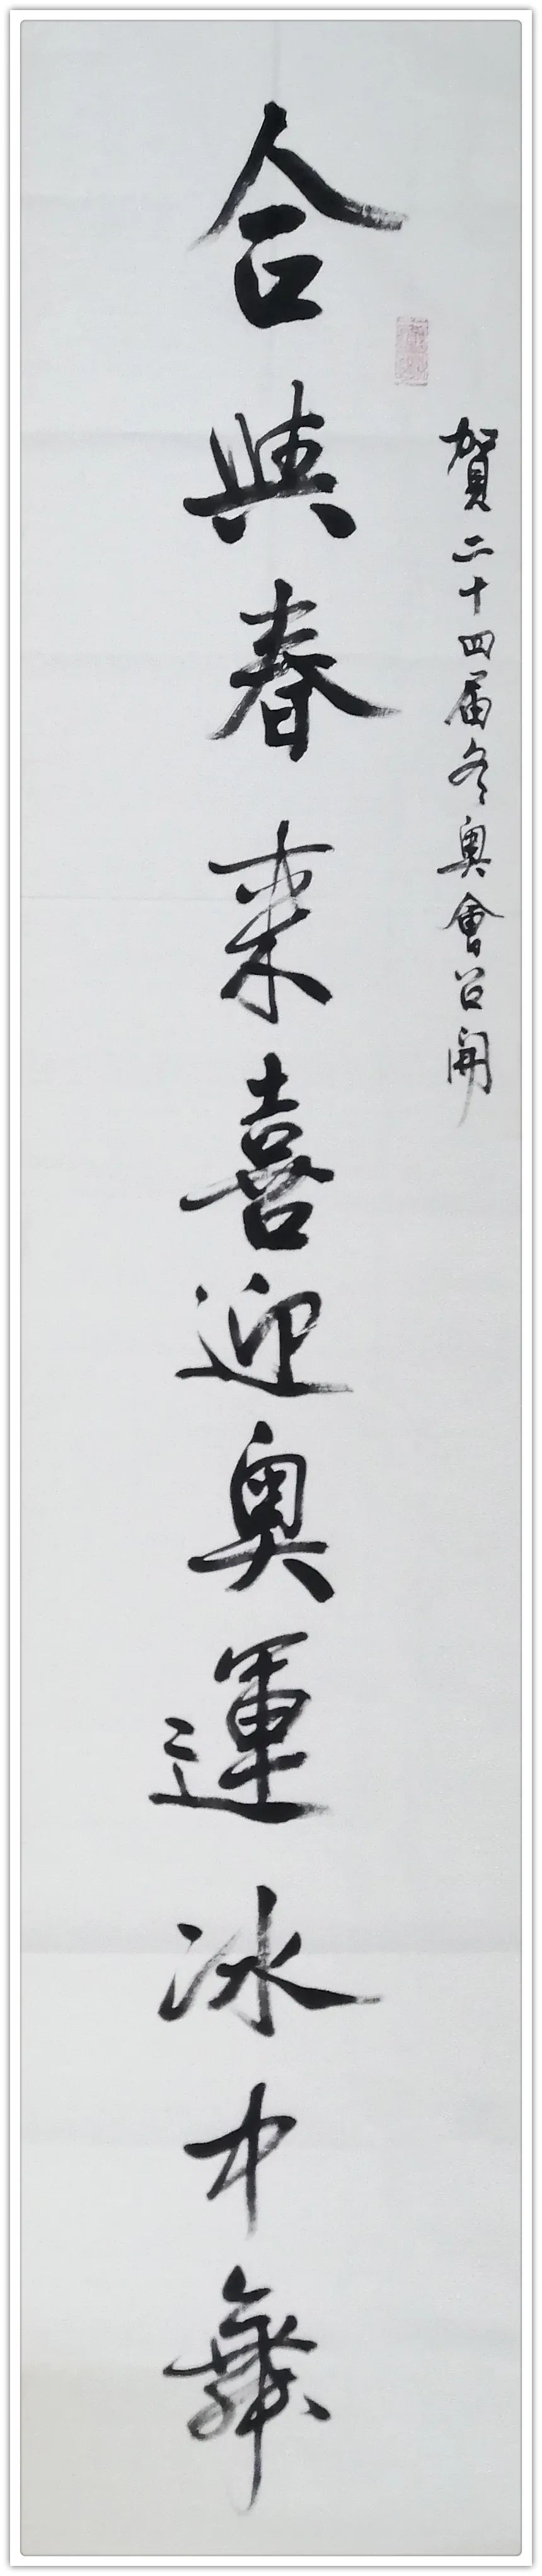 賀二十四届冬奥會召開
合與春來喜迎奥運冰中舞